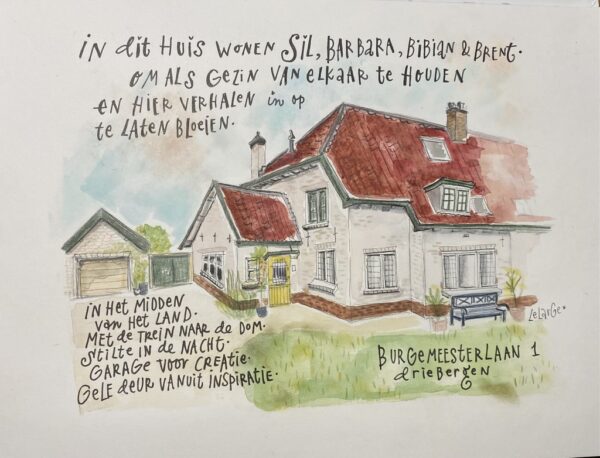 in dit Huis wonen Sil, BARBARA, BiBiAN & BRENT.
OM ALS GEZIN VAN elKAAR te HOUDEN
en HIER VERHALEN in op
te LATEN BLOEIEN.
IN Het MIDDEN
van Het LAND.
Met de TREIN NAAR de DOM.
Stilte in de NACHT.
GARAGE VOOR CREATIE.
Gele deur VANUIT INSPIRATIE.
LeLarGe*
BURGEMEESTERLAAN 1
drieBergen